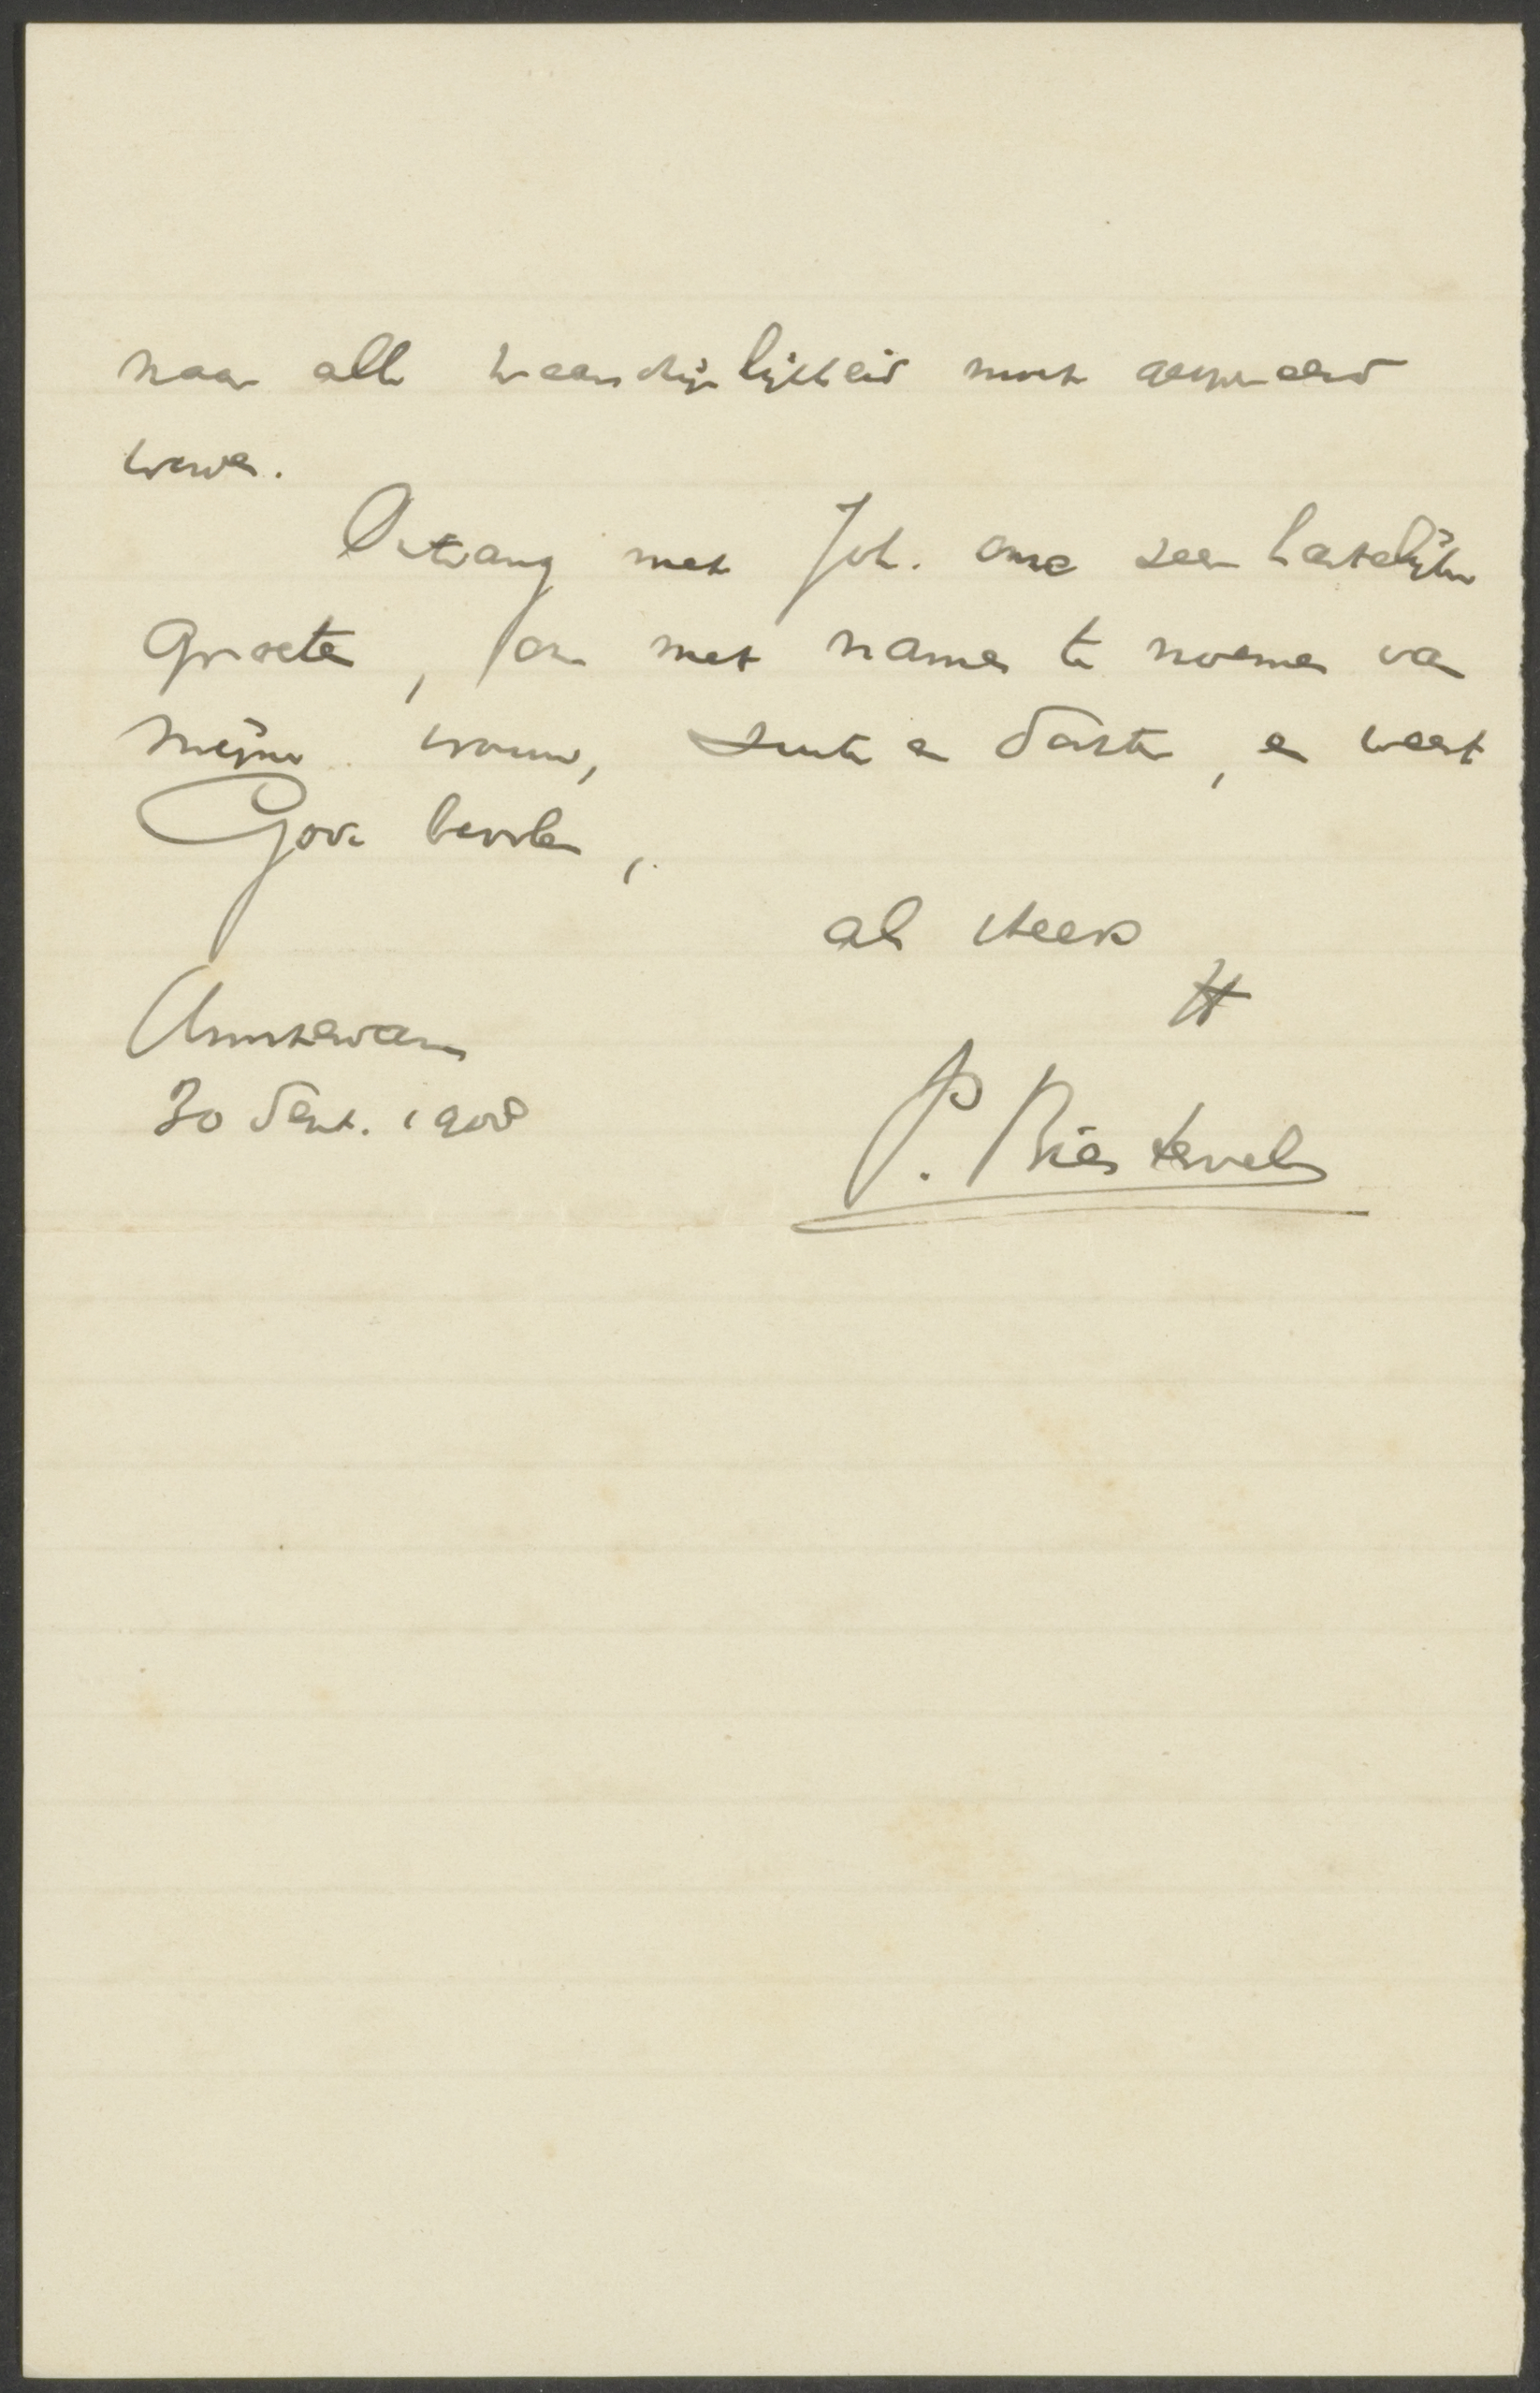 naar alle waarschijnlijkheid moet geopereerd
worden.
Ontvang met Joh. onze zeer hartelijke
groeten, ook met name te noemen van
mijne vrouw, en weest
Gode bevolen,
als steeds
tt
P. Biesterveld
Amsterdam
30 Sept. 1908